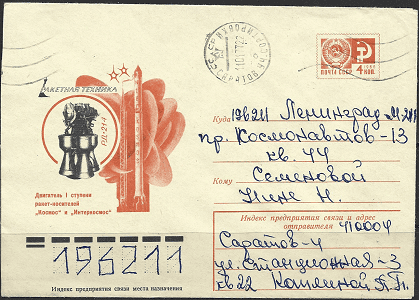 РАКЕТНАЯ ТЕХНИКА
РД-214
Двигатель I ступени
ракет-носителей
„Космос" и „Интеркосмос"
СССР АЭРОПОРТ
САРАТОВ
ПОЧТА СССР
1966
4 КОП.
Куда 196211 Ленинград М-211
пр. Космонавтов-13
кв. 44
Кому Семеновой
Нине Н.
Индекс предприятия связи и адрес
отправителя 410004
Саратов-4
ул. Станционная-3
кв 22
196211
Индекс предприятия связи места назначения